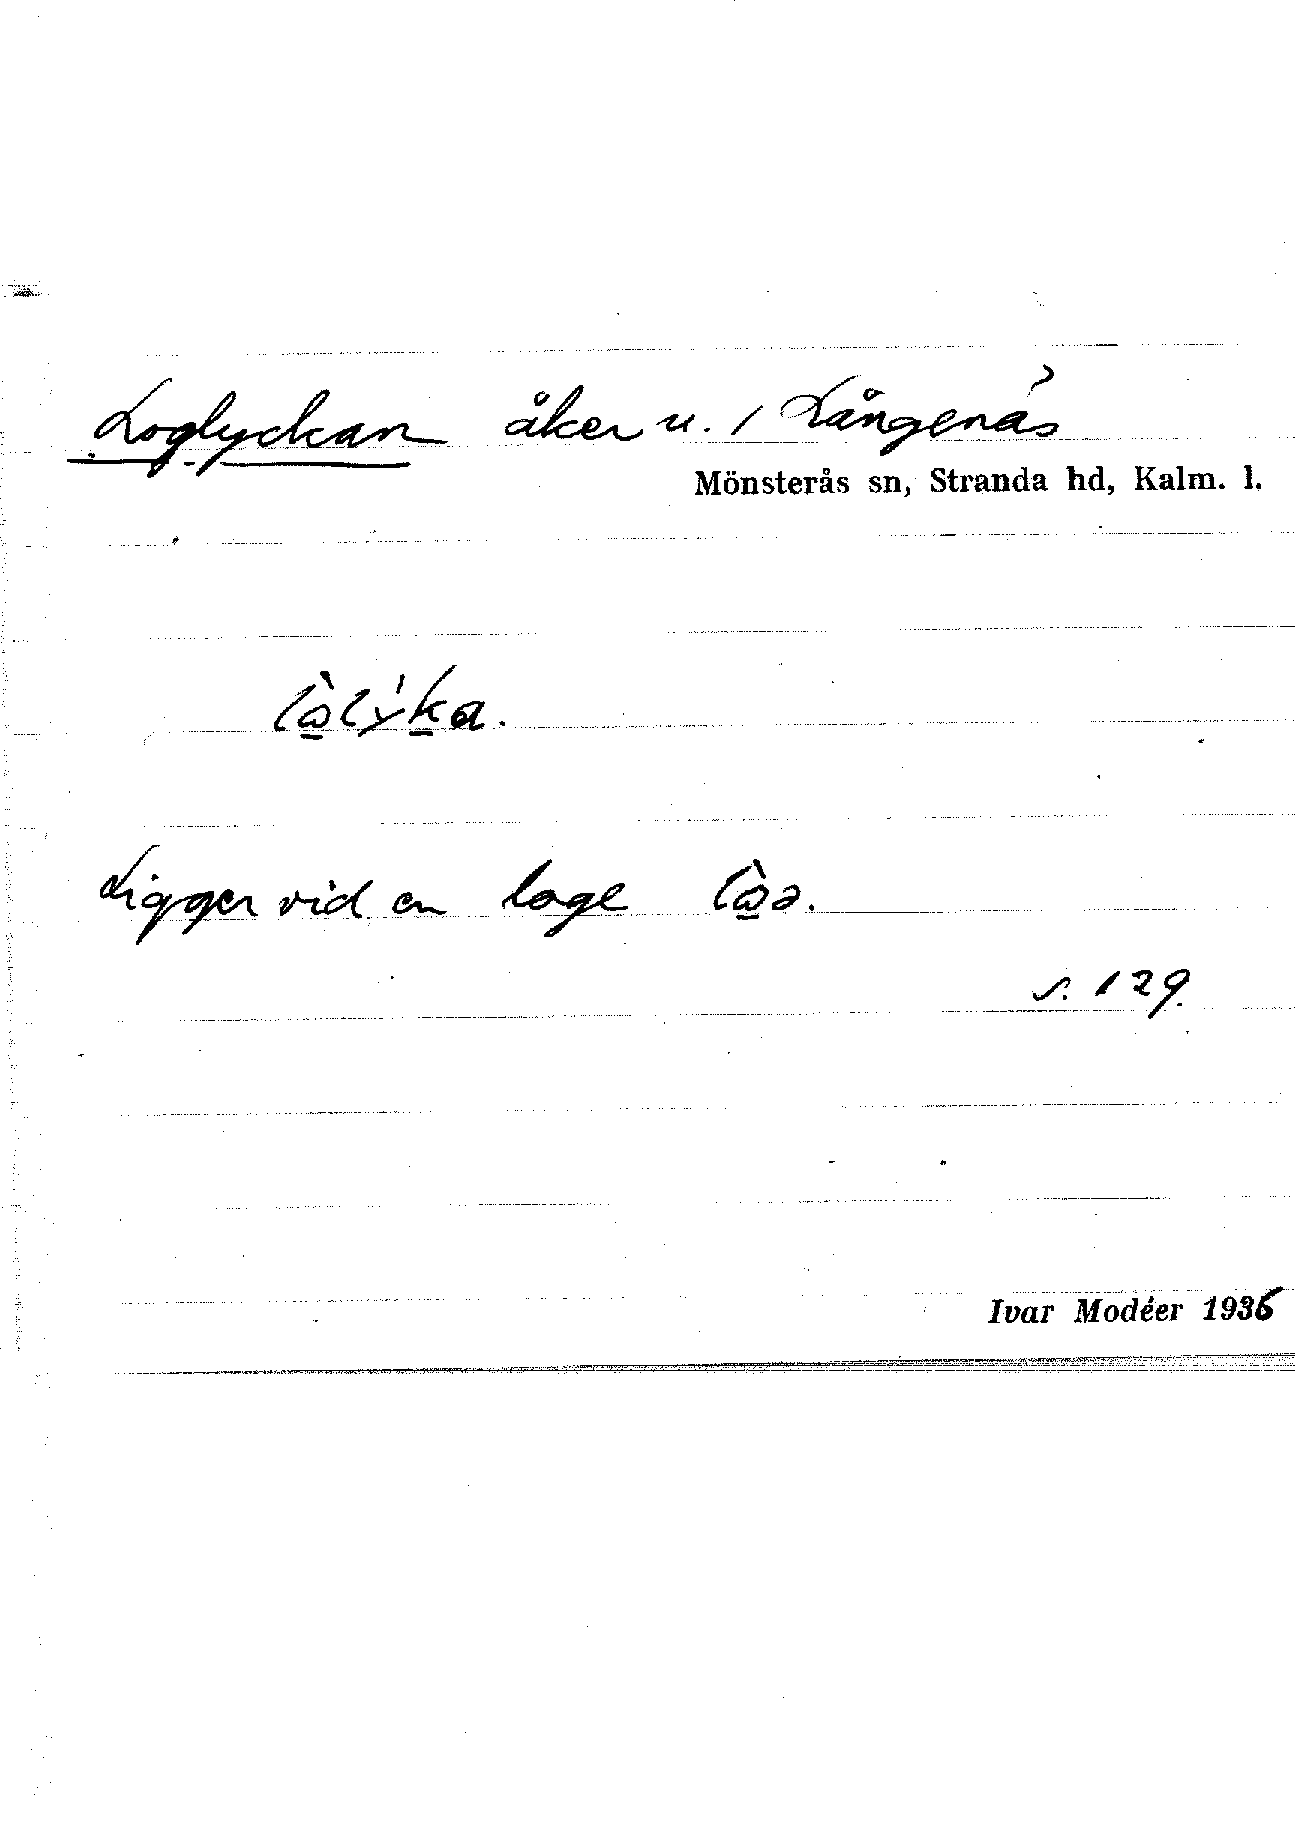 Loglyckan åker u. 1 Långenäs
Mönsterås sn, Stranda hd, Kalm. l.
Ligger vid en loge
s. 129.
Ivar Modéer 1936